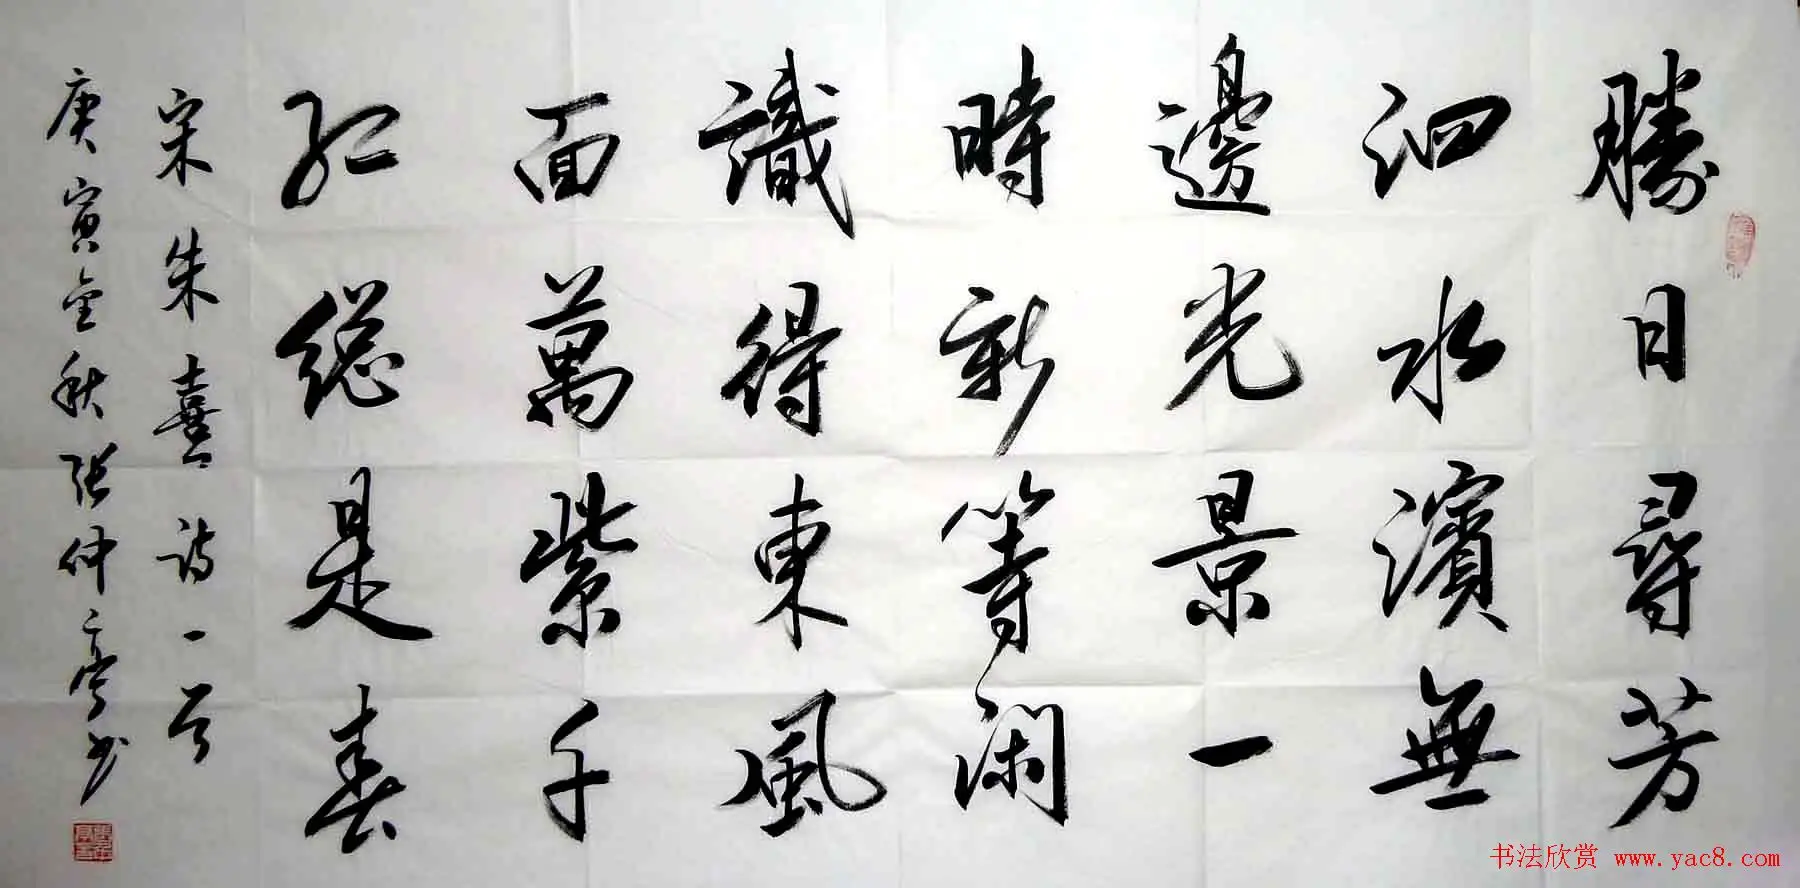 勝日尋芳
泗水濱無
邊光景一
時新等閑
識得東風
面萬紫千
紅總是春
宋朱熹詩一首
庚寅金秋張仲亭书
书法欣赏 www.yac8.com